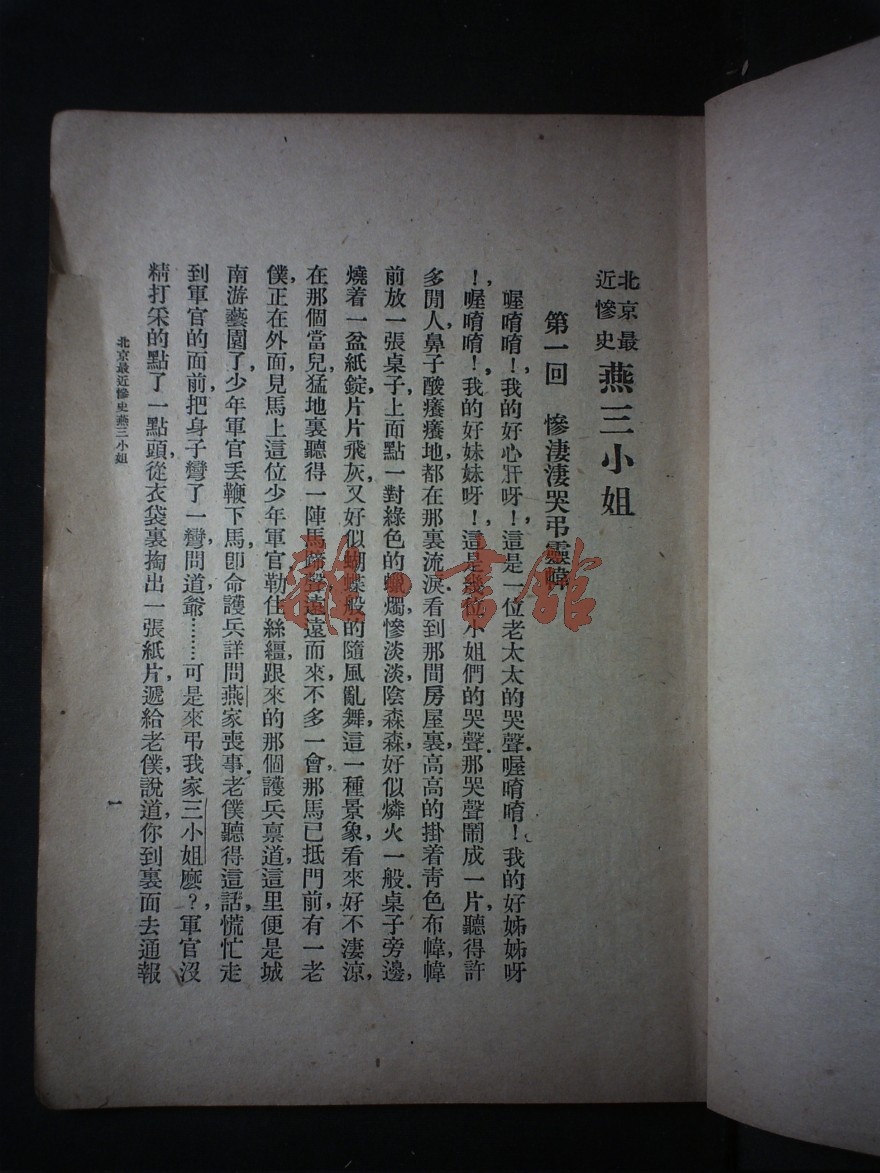 北京最近慘史 燕三小姐
第一回 慘淒淒哭弔靈幃
喔唷唷!我的好心肝呀!這是一位老太太的哭聲。喔唷唷!我的好姊姊呀
!喔唷唷!我的好妹妹呀!這是幾位小姐們的哭聲那哭聲鬧成一片,聽得許
多閒人鼻子酸癢癢地都在那裏流淚.看到那間房屋裏,高高的掛着靑色布幃,幃
前放一張桌子,上面點一對綠色的蠟燭,慘淡淡陰森森好似燐火一般.桌子旁邊,
燒着一盆紙錠,片片飛灰,又好似蝴蝶般的隨風亂舞,這一種景象,看來好不淒涼,
在那個當兒,猛地裏聽得一陣馬蹄聲,遠遠而來,不多一會,那馬已抵門前,有一老
僕,正在外面,見馬上這位少年軍官勒住絲繮,跟來的那個護兵稟道,這里便是城
南游藝園了,少年軍官丢鞭下馬,卽命護兵詳問燕家喪事.老僕聽得這話,慌忙走
到軍官的面前,把身子彎了一彎,問道爺………可是來弔我家三小姐麼?軍官沒
精打采的點了一點頭,從衣袋裏掏出一張紙片,遞給老僕,說道,你到裏面去通報
北京最近慘史燕三小姐
一
雜·書館